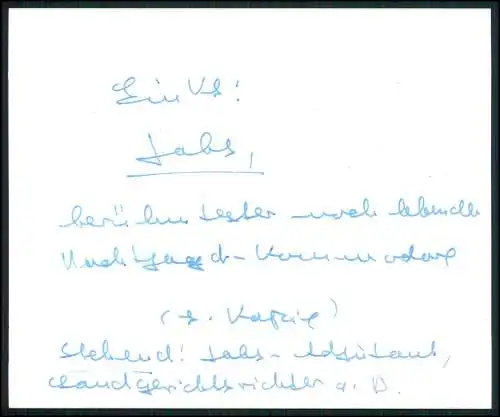 Links:
Jabs,
berühmtester noch lebender
Nachtjagd-Kommodore
(s. Kopie)
stehend: Jabs-Adjutant,
Landgerichtsrichter a. D.